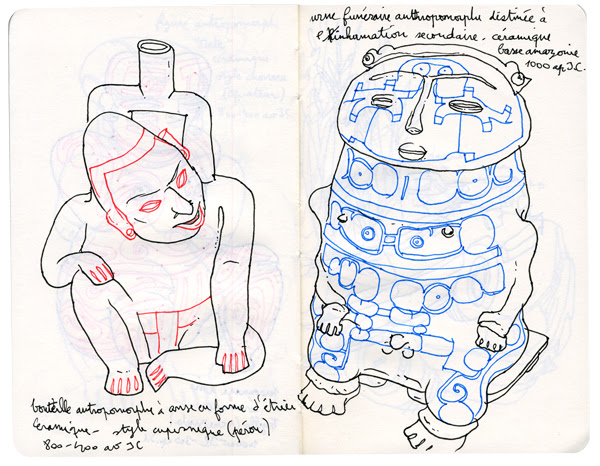 bouteille antropomorphe à anse en forme d'étrier
céramique - style cupisnique (pérou)
800-400 av JC
urne funéraire anthropomorphe destinée à
l'inhamation secondaire. céramique
basse amazonie
1000 ap J.C.